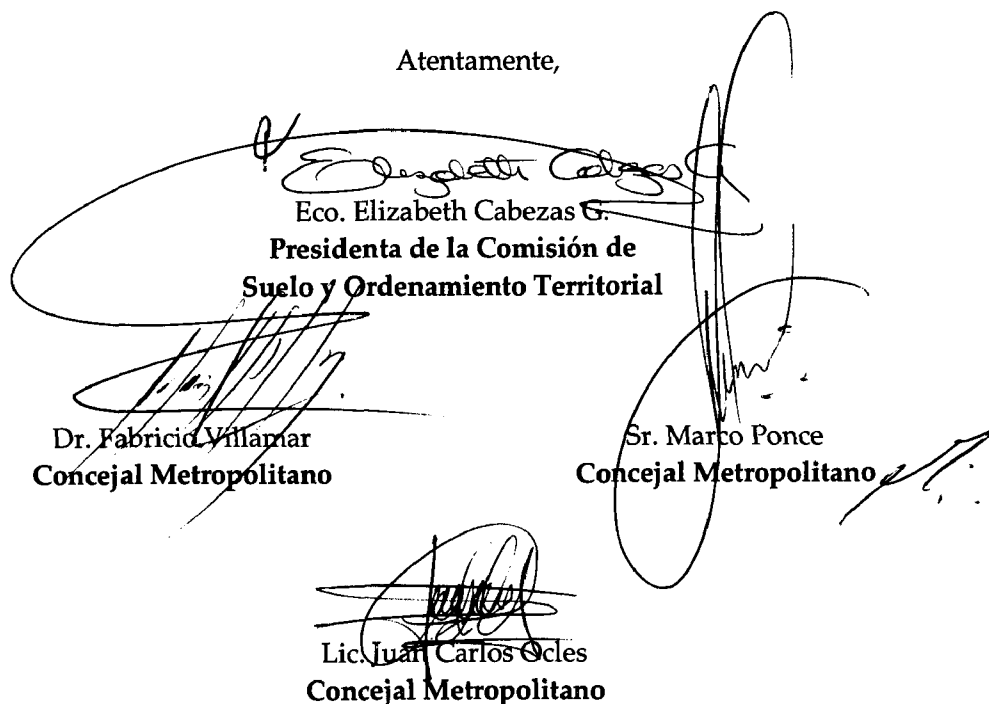 Atentamente,
Elizabeth Cabezas G
Eco. Elizabeth Cabezas G.
Presidenta de la Comisión de
Suelo y Ordenamiento Territorial
Dr. Fabricio Villamar
Concejal Metropolitano
Sr. Marco Ponce
Concejal Metropolitano
Lic. Juan Carlos Ocles
Concejal Metropolitano